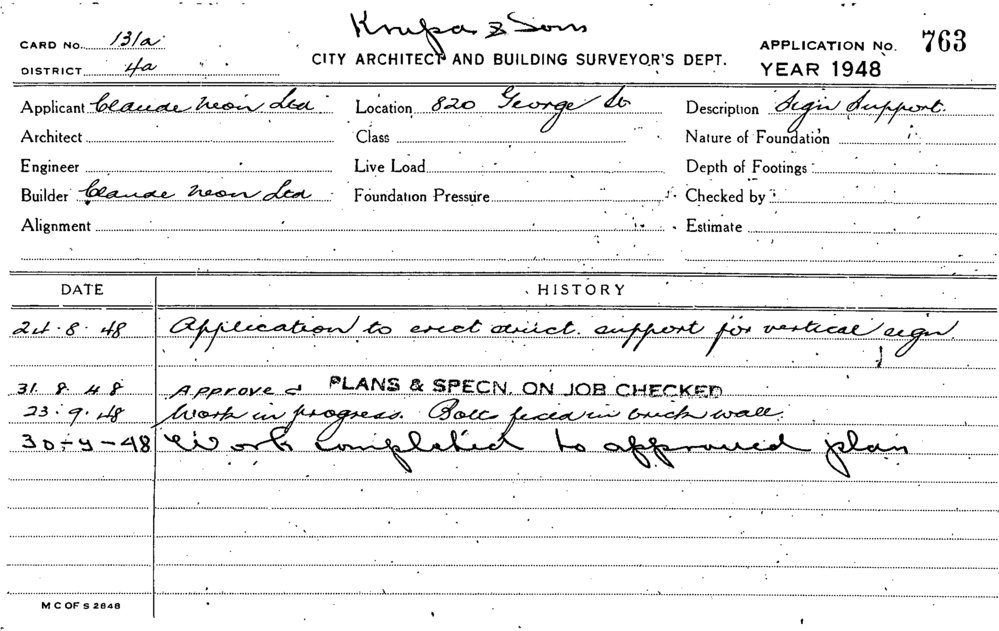 Krupa & Sons
CARD No. 131a
CITY ARCHITECT AND BUILDING SURVEYOR'S DEPT.
APPLICATION No. 763
DISTRICT 4a
YEAR 1948
Applicant Claude Neon Ltd Location 820 George St Description Sign Support.
Architect Class Nature of Foundation
Engineer Live Load Depth of Footings
Builder Claude Neon Ltd Foundation Pressure Checked by
Alignment Estimate
DATE HISTORY
24.8.48 Application to erect struct. support for vertical sign
31.8.48 Approved PLANS & SPECN. ON JOB CHECKED
23.9.48 Work in progress. Bolts fixed in brick wall.
30-9-48 Work completed to approved plan
M C OF S 2848